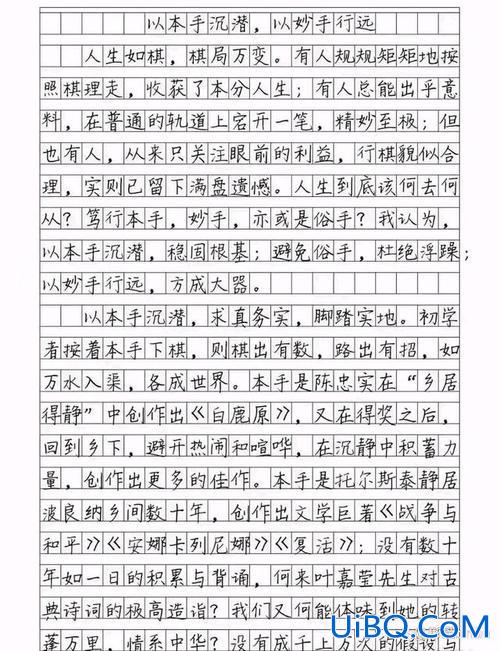 以本手沉潜，以妙手行远
人生如棋，棋局万变。有人规规矩矩地按
照棋理走，收获了本分人生；有人总能出乎意
料，在普通的轨道上宕开一笔，精妙至极；但
也有人，从来只关注眼前的利益，行棋貌似合
理，实则已留下满盘遗憾。人生到底该何去何
从？笃行本手，妙手，亦或是俗手？我认为，
以本手沉潜，稳固根基；避免俗手，杜绝浮躁；
以妙手行远，方成大器。
以本手沉潜，求真务实，脚踏实地。初学
者按着本手下棋，则棋出有数，路出有招，如
万水入渠，各成世界。本手是陈忠实在“乡居
得静”中创作出《白鹿原》，又在得奖之后，
回到乡下，避开热闹和喧哗，在沉静中积蓄力
量，创作出更多的佳作。本手是托尔斯泰静居
波良纳乡间数十年，创作出文学巨著《战争与
和平》《安娜卡列尼娜》《复活》；没有数十
年如一日的积累与背诵，何来叶嘉莹先生对古
典诗词的极高造诣？我们又何能体味到她的转
蓬万里，情系中华？没有成千上万次的假设与
UiBQ.CoM